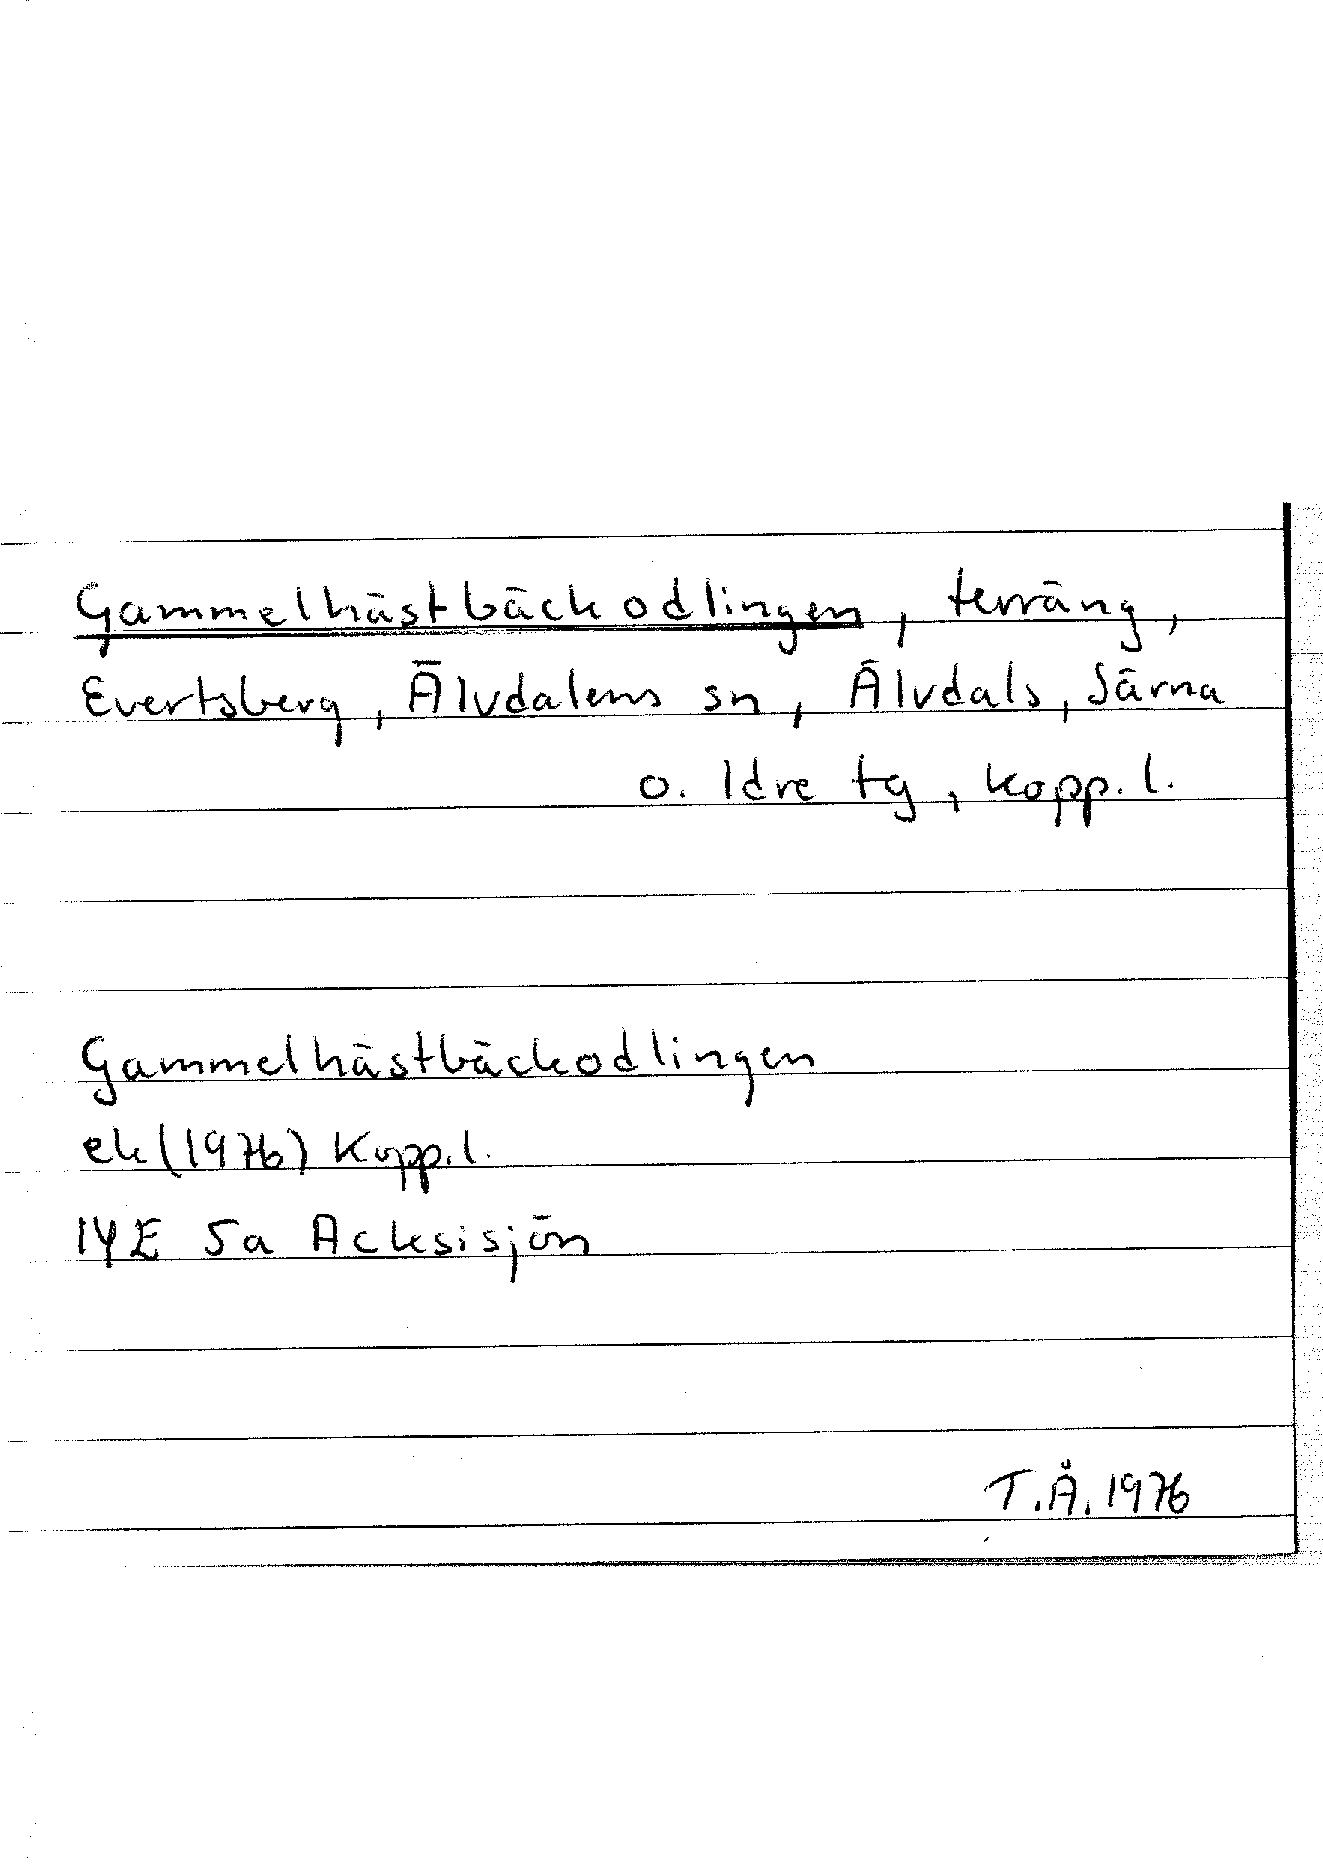 Gammelhästbäckodlingen, terräng,
Evertsberg, Älvdalens sn, Älvdals, Särna
o. Idre tg, Kopp. l.
Gammelhästbäckodlingen
ek (1976) Kopp. l.
14E 5a Acksisjön
T.Å. 1976